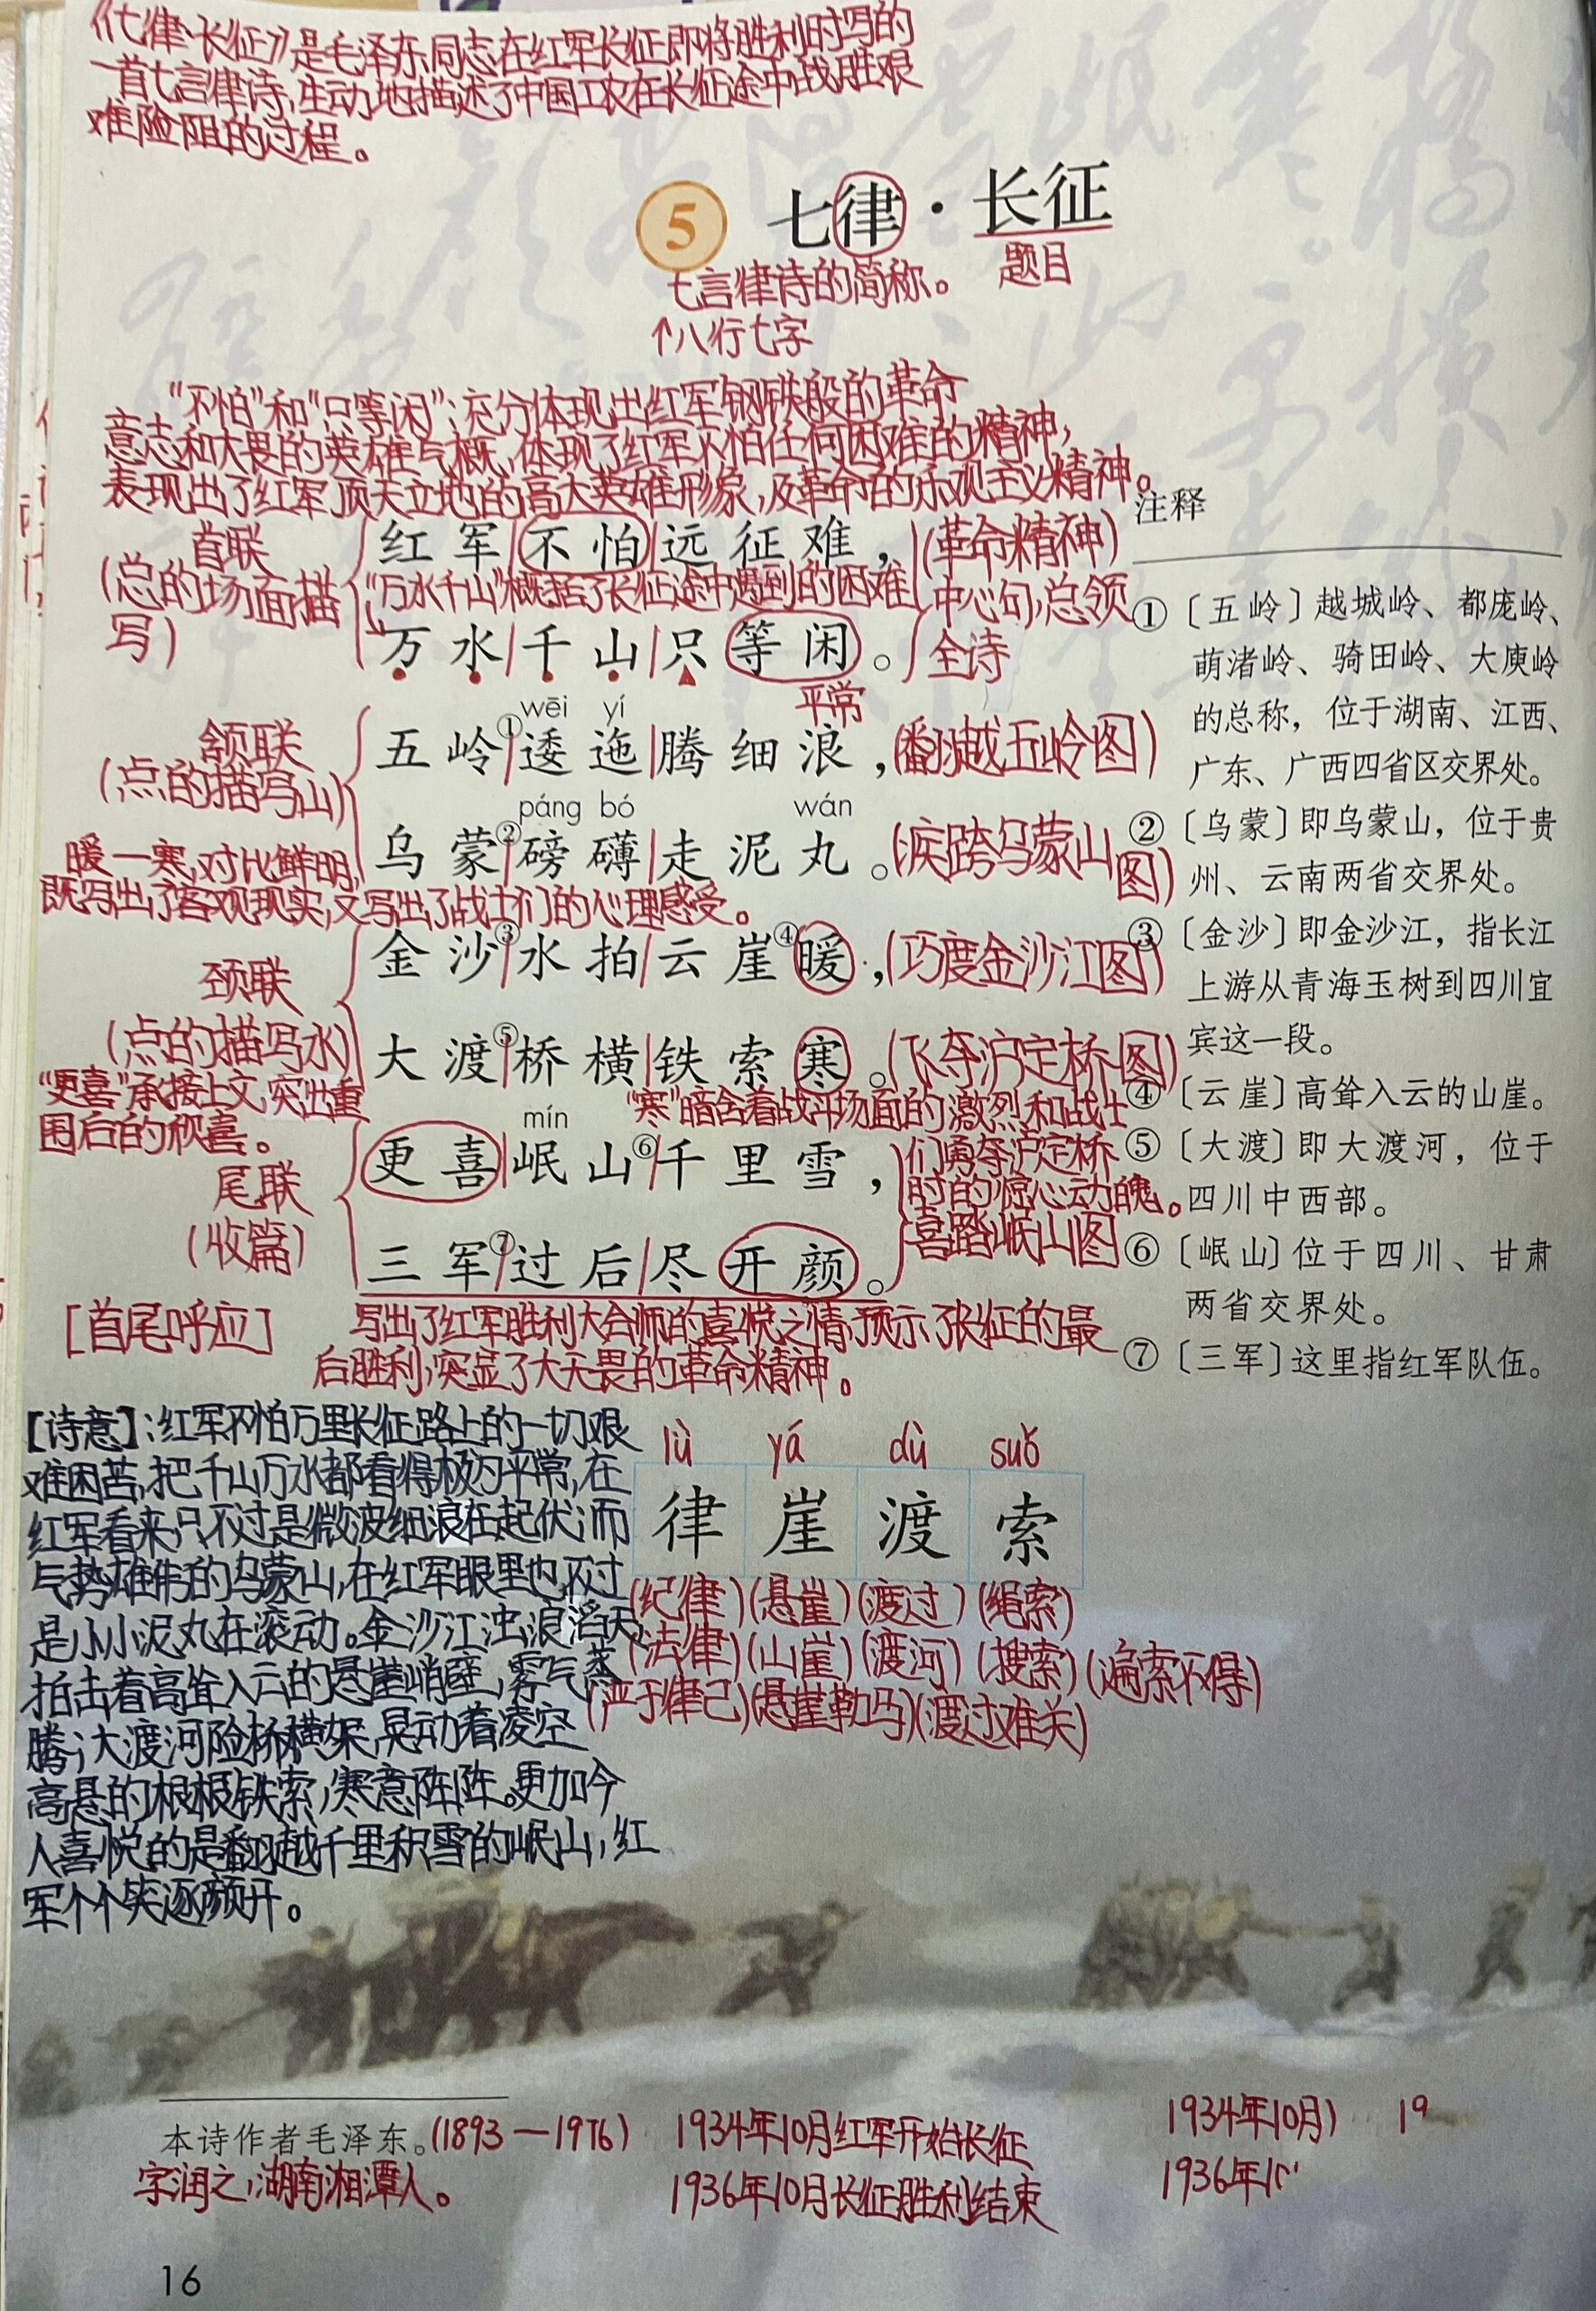 《七律·长征》是毛泽东同志在红军长征即将胜利时写的
一首七言律诗,生动地描述了中国工农在长征途中战胜艰
难险阻的过程。
5 七律·长征
七言律诗的简称。 题目
↑八行七字
“不怕”和“只等闲”:充分体现出红军钢铁般的革命
意志和大畏的英雄气概,体现了红军不怕任何困难的精神,
表现出了红军顶天立地的高大英雄形象,及革命的乐观主义精神。
首联
(总的场面描
写)
红军不怕远征难,
(革命精神)
“万水千山”概括了长征途中遇到的困难
中心句,总领
全诗
万水千山只等闲。
平常
颔联
(点的描写山)
wēi yí
五岭①逶迤腾细浪,
(翻越五岭图)
páng bó wán
乌蒙②磅礴走泥丸。
(疾跨乌蒙山
图)
暖一寒,对比鲜明,
既写出了客观现实,又写出了战士们的心理感受。
颈联
(点的描写水)
金沙③水拍云崖④暖,
(巧度金沙江图)
大渡⑤桥横铁索寒。
(飞夺泸定桥图)
“更喜”承接上文,突出重
围后的欣喜。
“寒”暗含着战斗场面的激烈和战士
们勇夺泸定桥
时的惊心动魄。
尾联
(收篇)
mín
更喜岷山⑥千里雪,
喜踏岷山图
三军⑦过后尽开颜。
[首尾呼应]
写出了红军胜利大会师的喜悦之情,预示了长征的最
后胜利,突显了大无畏的革命精神。
注释
①〔五岭〕越城岭、都庞岭、
萌渚岭、骑田岭、大庾岭
的总称,位于湖南、江西、
广东、广西四省区交界处。
②〔乌蒙〕即乌蒙山,位于贵
州、云南两省交界处。
③〔金沙〕即金沙江,指长江
上游从青海玉树到四川宜
宾这一段。
④〔云崖〕高耸入云的山崖。
⑤〔大渡〕即大渡河,位于
四川中西部。
⑥〔岷山〕位于四川、甘肃
两省交界处。
⑦〔三军〕这里指红军队伍。
[诗意]:红军不怕万里长征路上的一切艰
难困苦,把千山万水都看得极为平常,在
红军看来,只不过是微波细浪在起伏;而
气势雄伟的乌蒙山,在红军眼里也不过
是小小泥丸在滚动。金沙江浊浪滔天,
拍击着高耸入云的悬崖峭壁,雾气蒸
腾;大渡河险桥横架,晃动着凌空
高悬的根根铁索,寒意阵阵。更加令
人喜悦的是翻越千里积雪的岷山,红
军个个笑逐颜开。
lǜ yá dù suǒ
律 崖 渡 索
(纪律)(悬崖)(渡过)(绳索)
(法律)(山崖)(渡河)(搜索)(遍索不得)
(严于律己)(悬崖勒马)(渡过难关)
本诗作者毛泽东。(1893—1976)
字润之,湖南湘潭人。
1934年10月红军开始长征
1936年10月长征胜利结束
1934年10月) 19
1936年1
16